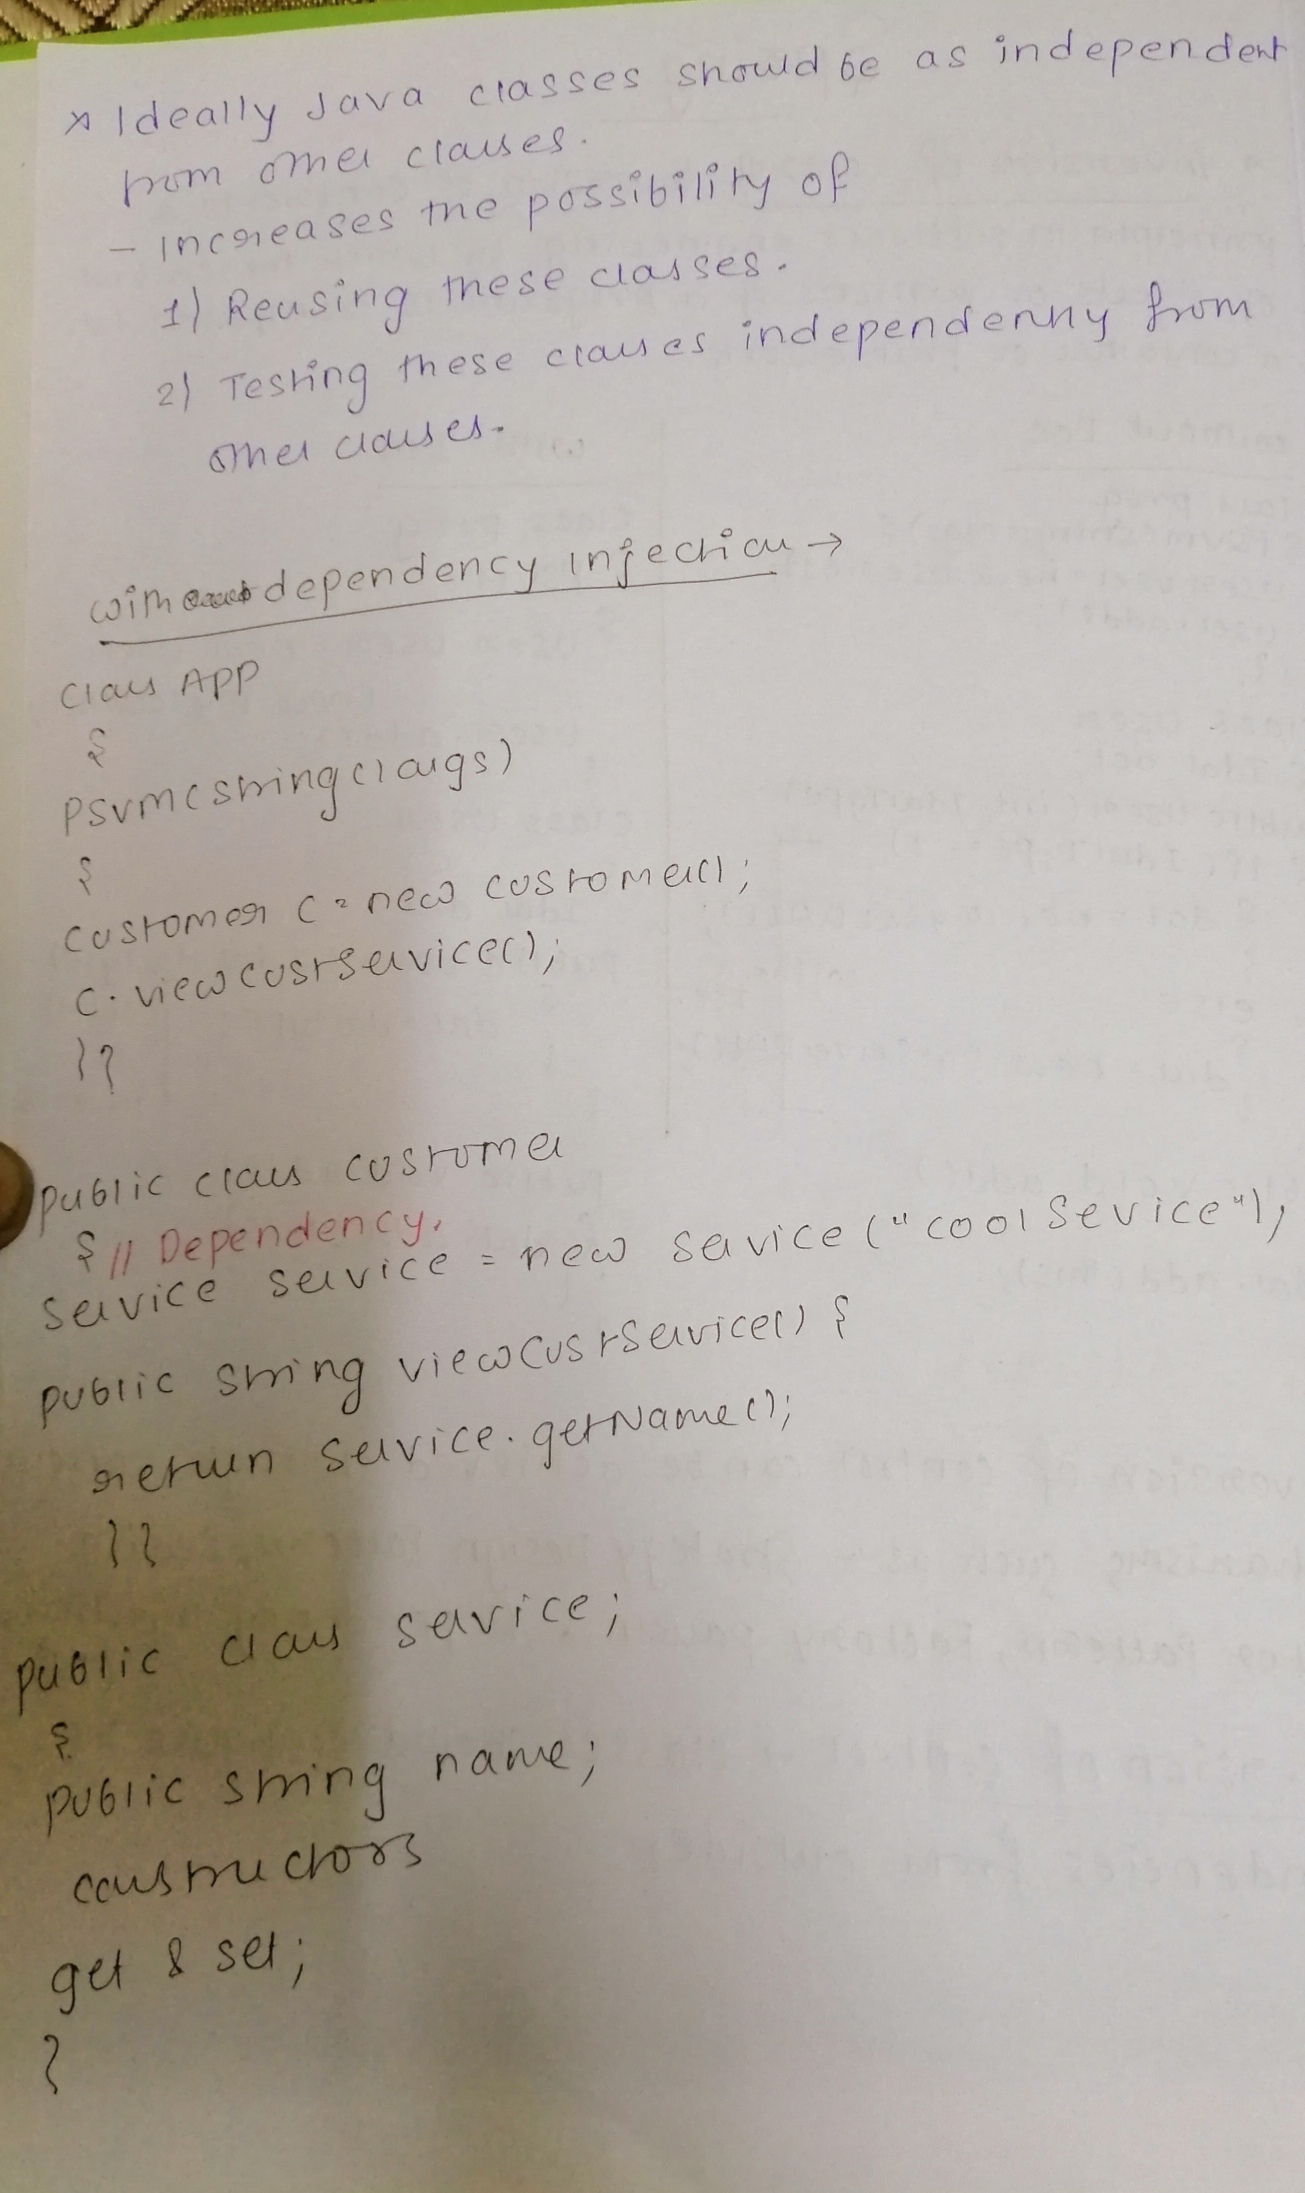 * Ideally Java classes should be as independent
from other classes.
- Increases the possibility of
1) Reusing these classes.
2) Testing these classes independently from
other classes.
without dependency injection →
class APP
{
psvm(string[] args)
{
customer c = new customer();
c.viewCustService();
}}
public class customer
{ // Dependency.
Service service = new service ("cool Sevice");
public string viewCustService() {
return service.getName();
}}
public class service;
{
public string name;
constructors
get & set;
}